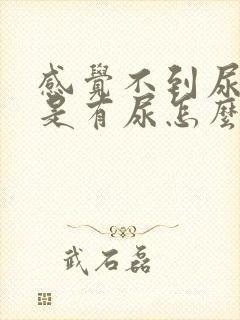 感覺不到尿
是有尿怎麼
武石磊